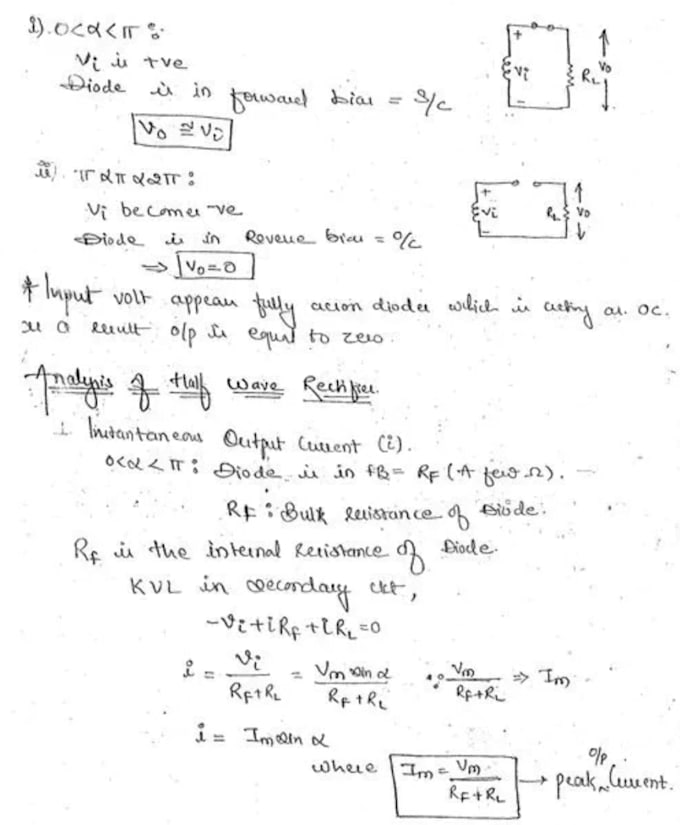 i). 0<α<π :
Vi is +ve
Diode is in forward bias = S/C
Vo ≅ Vi
+
Vi
-
RL
Vo
ii). π α π α 2π :
Vi becomes -ve
Diode is in Reverse bias = O/C
⇒ Vo=0
+
Vi
-
RL
Vo
* Input volt appears fully across diodes which is acting as OC.
as a result o/p is equal to zero.
Analysis of Half Wave Rectifier
1 Instantaneous Output Current (i).
0<α<π : Diode is in FB = RF (A few Ω).
RF : Bulk resistance of Diode.
Rf is the internal Resistance of Diode.
KVL in secondary ckt,
-Vi+iRF+iRL=0
i = Vi/(RF+RL) = Vm sin α/(RF+RL) ∵ Vm/(RF+RL) ⇒ Im
i = Im sin α
where Im = Vm/(RF+RL) → peak o/p Current.